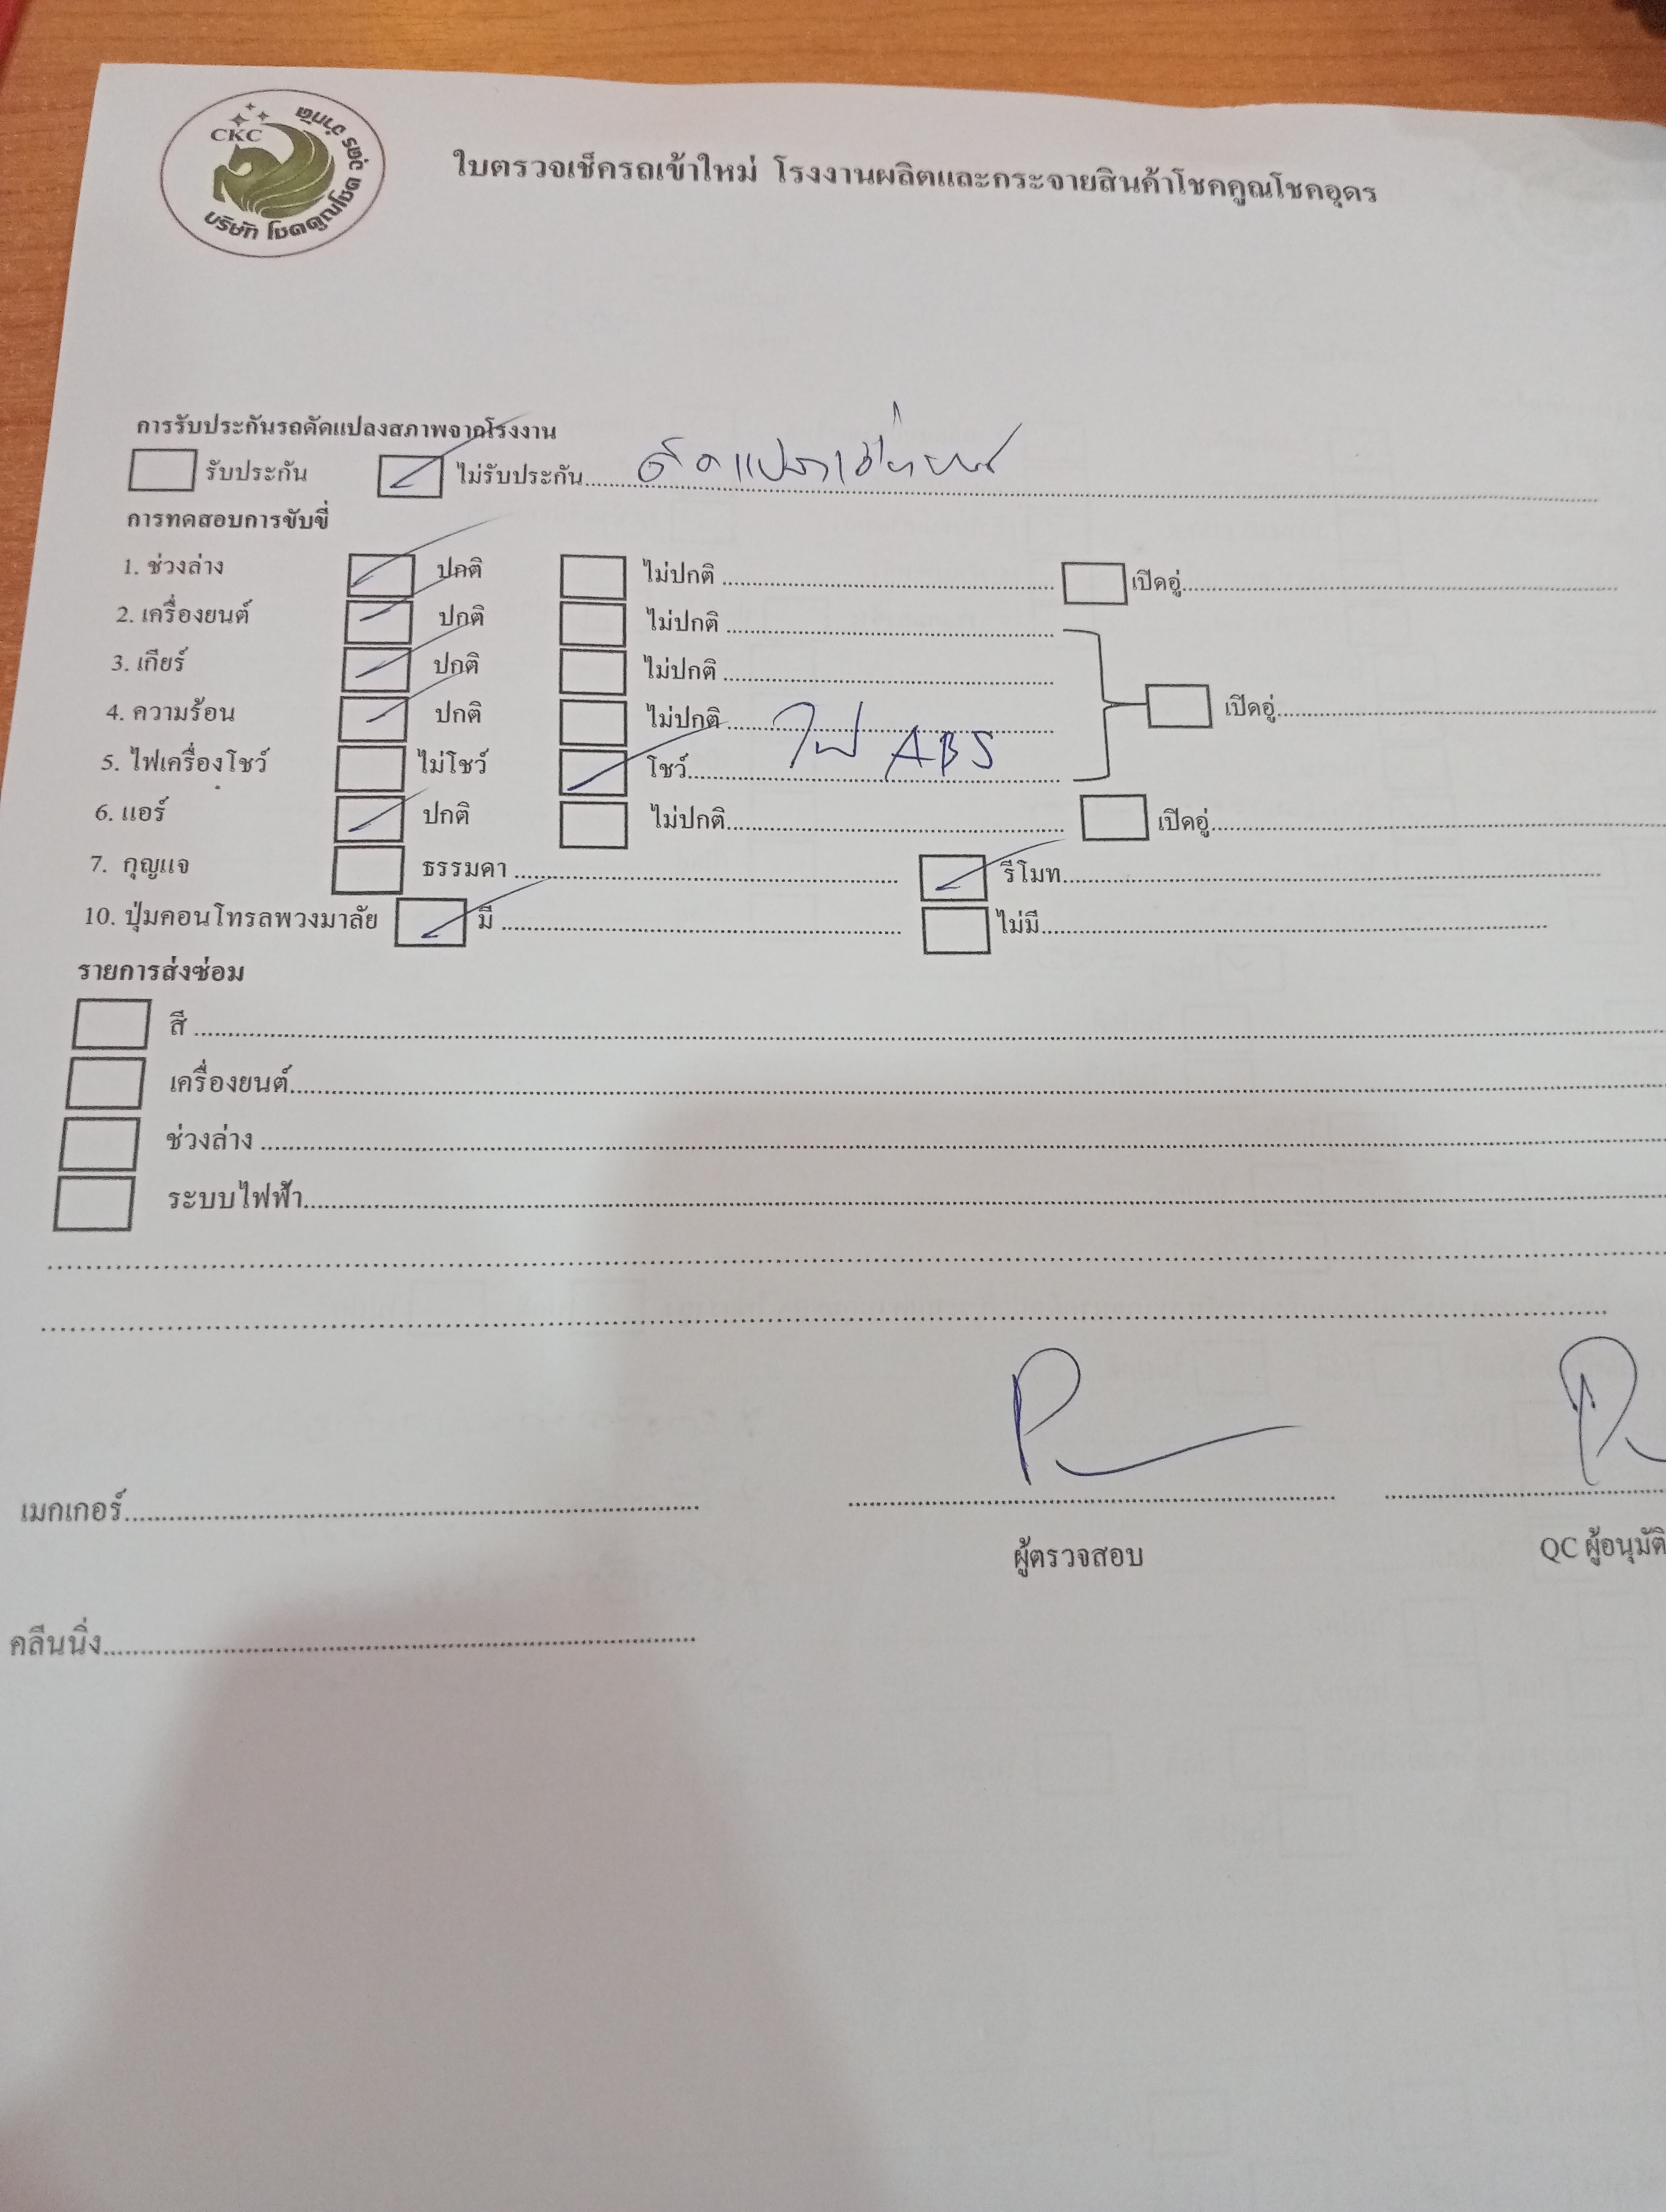 CKC
บริษัท โชคคูณโชค อุดร จำกัด
ใบตรวจเช็ครถเข้าใหม่ โรงงานผลิตและกระจายสินค้าโชคคูณโชคอุดร
การรับประกันรถดัดแปลงสภาพจากโรงงาน
รับประกัน ไม่รับประกัน ดัดแปลง
การทดสอบการขับขี่
1. ช่วงล่าง ปกติ ไม่ปกติ เปิดอู่
2. เครื่องยนต์ ปกติ ไม่ปกติ
3. เกียร์ ปกติ ไม่ปกติ
4. ความร้อน ปกติ ไม่ปกติ เปิดอู่
5. ไฟเครื่องโชว์ ไม่โชว์ โชว์ ไฟ ABS
6. แอร์ ปกติ ไม่ปกติ เปิดอู่
7. กุญแจ ธรรมดา รีโมท
10. ปุ่มคอนโทรลพวงมาลัย มี ไม่มี
รายการส่งซ่อม
สี
เครื่องยนต์
ช่วงล่าง
ระบบไฟฟ้า
เมกเกอร์
ผู้ตรวจสอบ QC ผู้อนุมัติ
คลีนนิ่ง